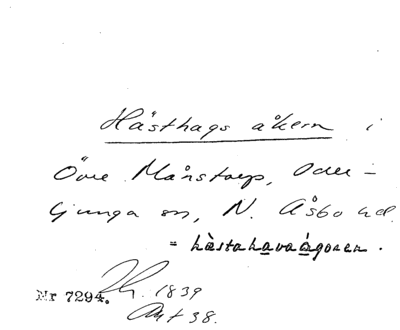 Hästhags åkern i
Övre Månstorp, Oder-
ljunga sn, N. Åsbo hd.
= hästahavaågoren.
1839
Nr 7294.
Akt 38.